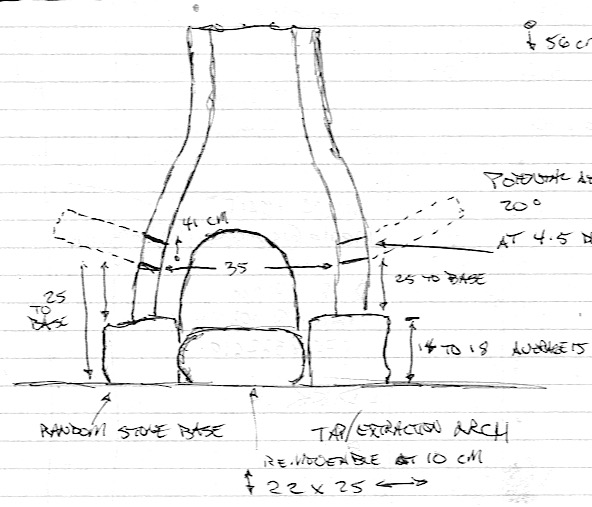 56 cm
41 CM
20°
AT 4.5 D
35
25 TO BASE
25
TO
BASE
14 TO 18 AVERAGE 15
RANDOM STONE BASE
TAP/EXTRACTION ARCH
REMOVEABLE AT 10 CM
22 x 25